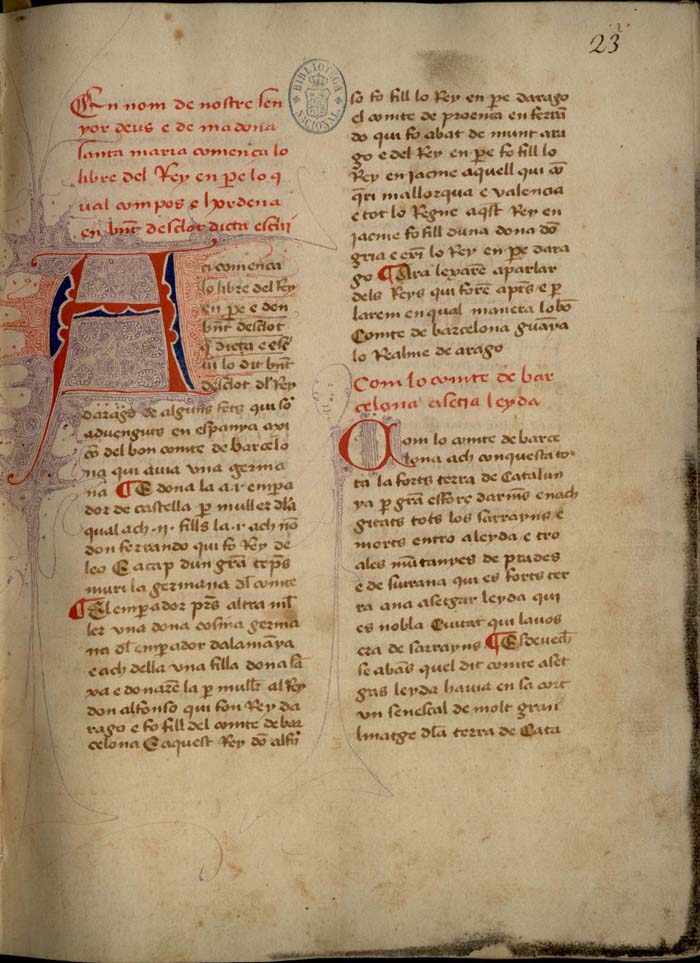 23
BIBLIOTECA NACIONAL
En nom de nostre sen
yor deus e de madona
santa maria comença lo
libre del Rey en pe̅re lo q
ual compos e hordena
en bn̅t desclot dicta escri
Aci comença
lo libre del Rey
en pe̅re e den
bn̅t desclot
q̅ dicta e esc̅
iu lo dit bn̅t
desclot dl̅ Rey
darago de alguns fets qui so̅
advenguts en espanya axi
co̅ del bon comte de barcelo
na qui avia una germa
na E dona la a .i. empa
dor de castella p̅ muller dl̅a
qual ach .ii. fills la .i. ach no̅
don ferrando qui fo Rey de
leo E a cap dun gra̅ te̅ps
muri la germana dl̅ comte
El emperador pre̅s altra mul̅
ler una dona cosina germa
na dl̅ emperador dalama̅ya
e ach della una filla dona sa̅
xa e donare̅ la p̅ mull̅r al Rey
don alfonso qui fou Rey da
rago e fo fill del comte de bar
celona E aquest Rey do̅ alfo̅
so fo fill lo Rey en pe̅re darago
el comte de proença en ferra̅
do qui fo abat de munt ara
go e del Rey en pe̅re fo fill lo
Rey en jacme aquell qui co̅
q̅ri mallorqua e valencia
e tot lo Regne aq̅st Rey en
jacme fo fill duna dona do̅
gria e exi̅ lo Rey en pe̅re dara
go Ara lexare̅ a parlar
dels Reys qui fore̅ apre̅s e p̅
larem en qual manera lo bo̅
Comte de barcelona gua̅ya
lo Realme de arago
Com lo comte de bar
celona asetia leyda
Com lo comte de barce
lona ach conquesta to
ta la forts terra de Catalun
ya p̅ gra̅ esforç darm̅s e nach
gitats tots los sarrayns e
morts entro a leyda e tro
a les mu̅tanyes de prades
e de siurana qui es forts ter
ra ana asetgar leyda qui
es nobla Ciutat qui lavos
era de sarrayns Esdevech̅
se aba̅s quel dit comte aset
gas leyda havia en sa cort
un senescal de molt gran
linatge dl̅a terra de Cata